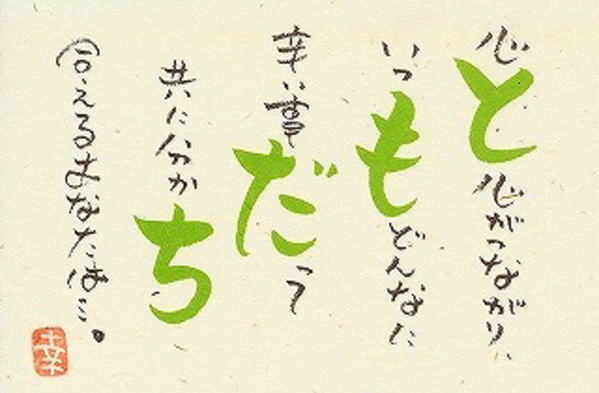 心と心がつながり、
いつもどんなに
辛い事だって
共に分かち
合えるあなたは…。
幸